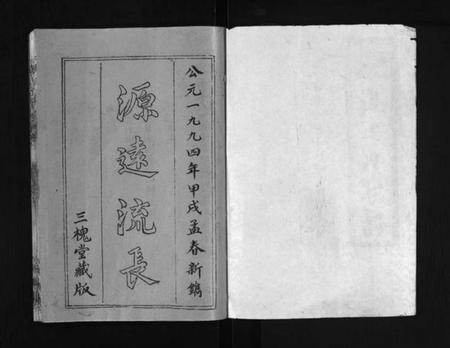 公元一九九四年甲戌孟春新鐫
源遠流長
三槐堂藏版